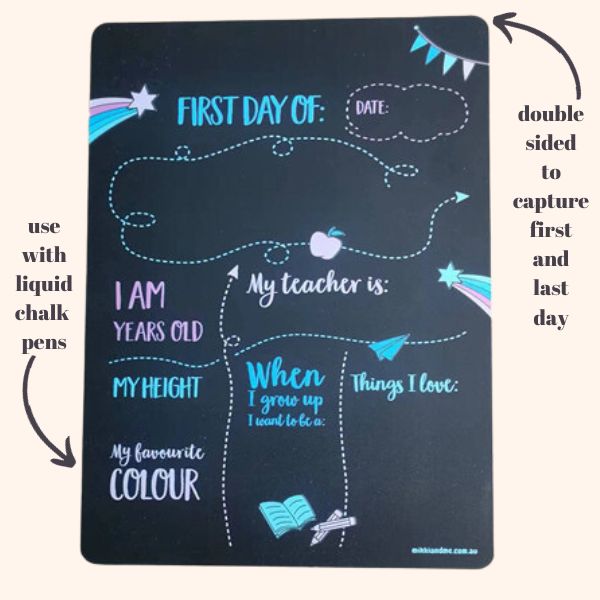 FIRST DAY OF:
DATE:
double
sided
to
capture
first
and
last
day
use
with
liquid
chalk
pens
I AM
YEARS OLD
My teacher is:
MY HEIGHT
When
I grow up
I want to be a:
Things I love:
My favourite
COLOUR
mikkiandme.com.au